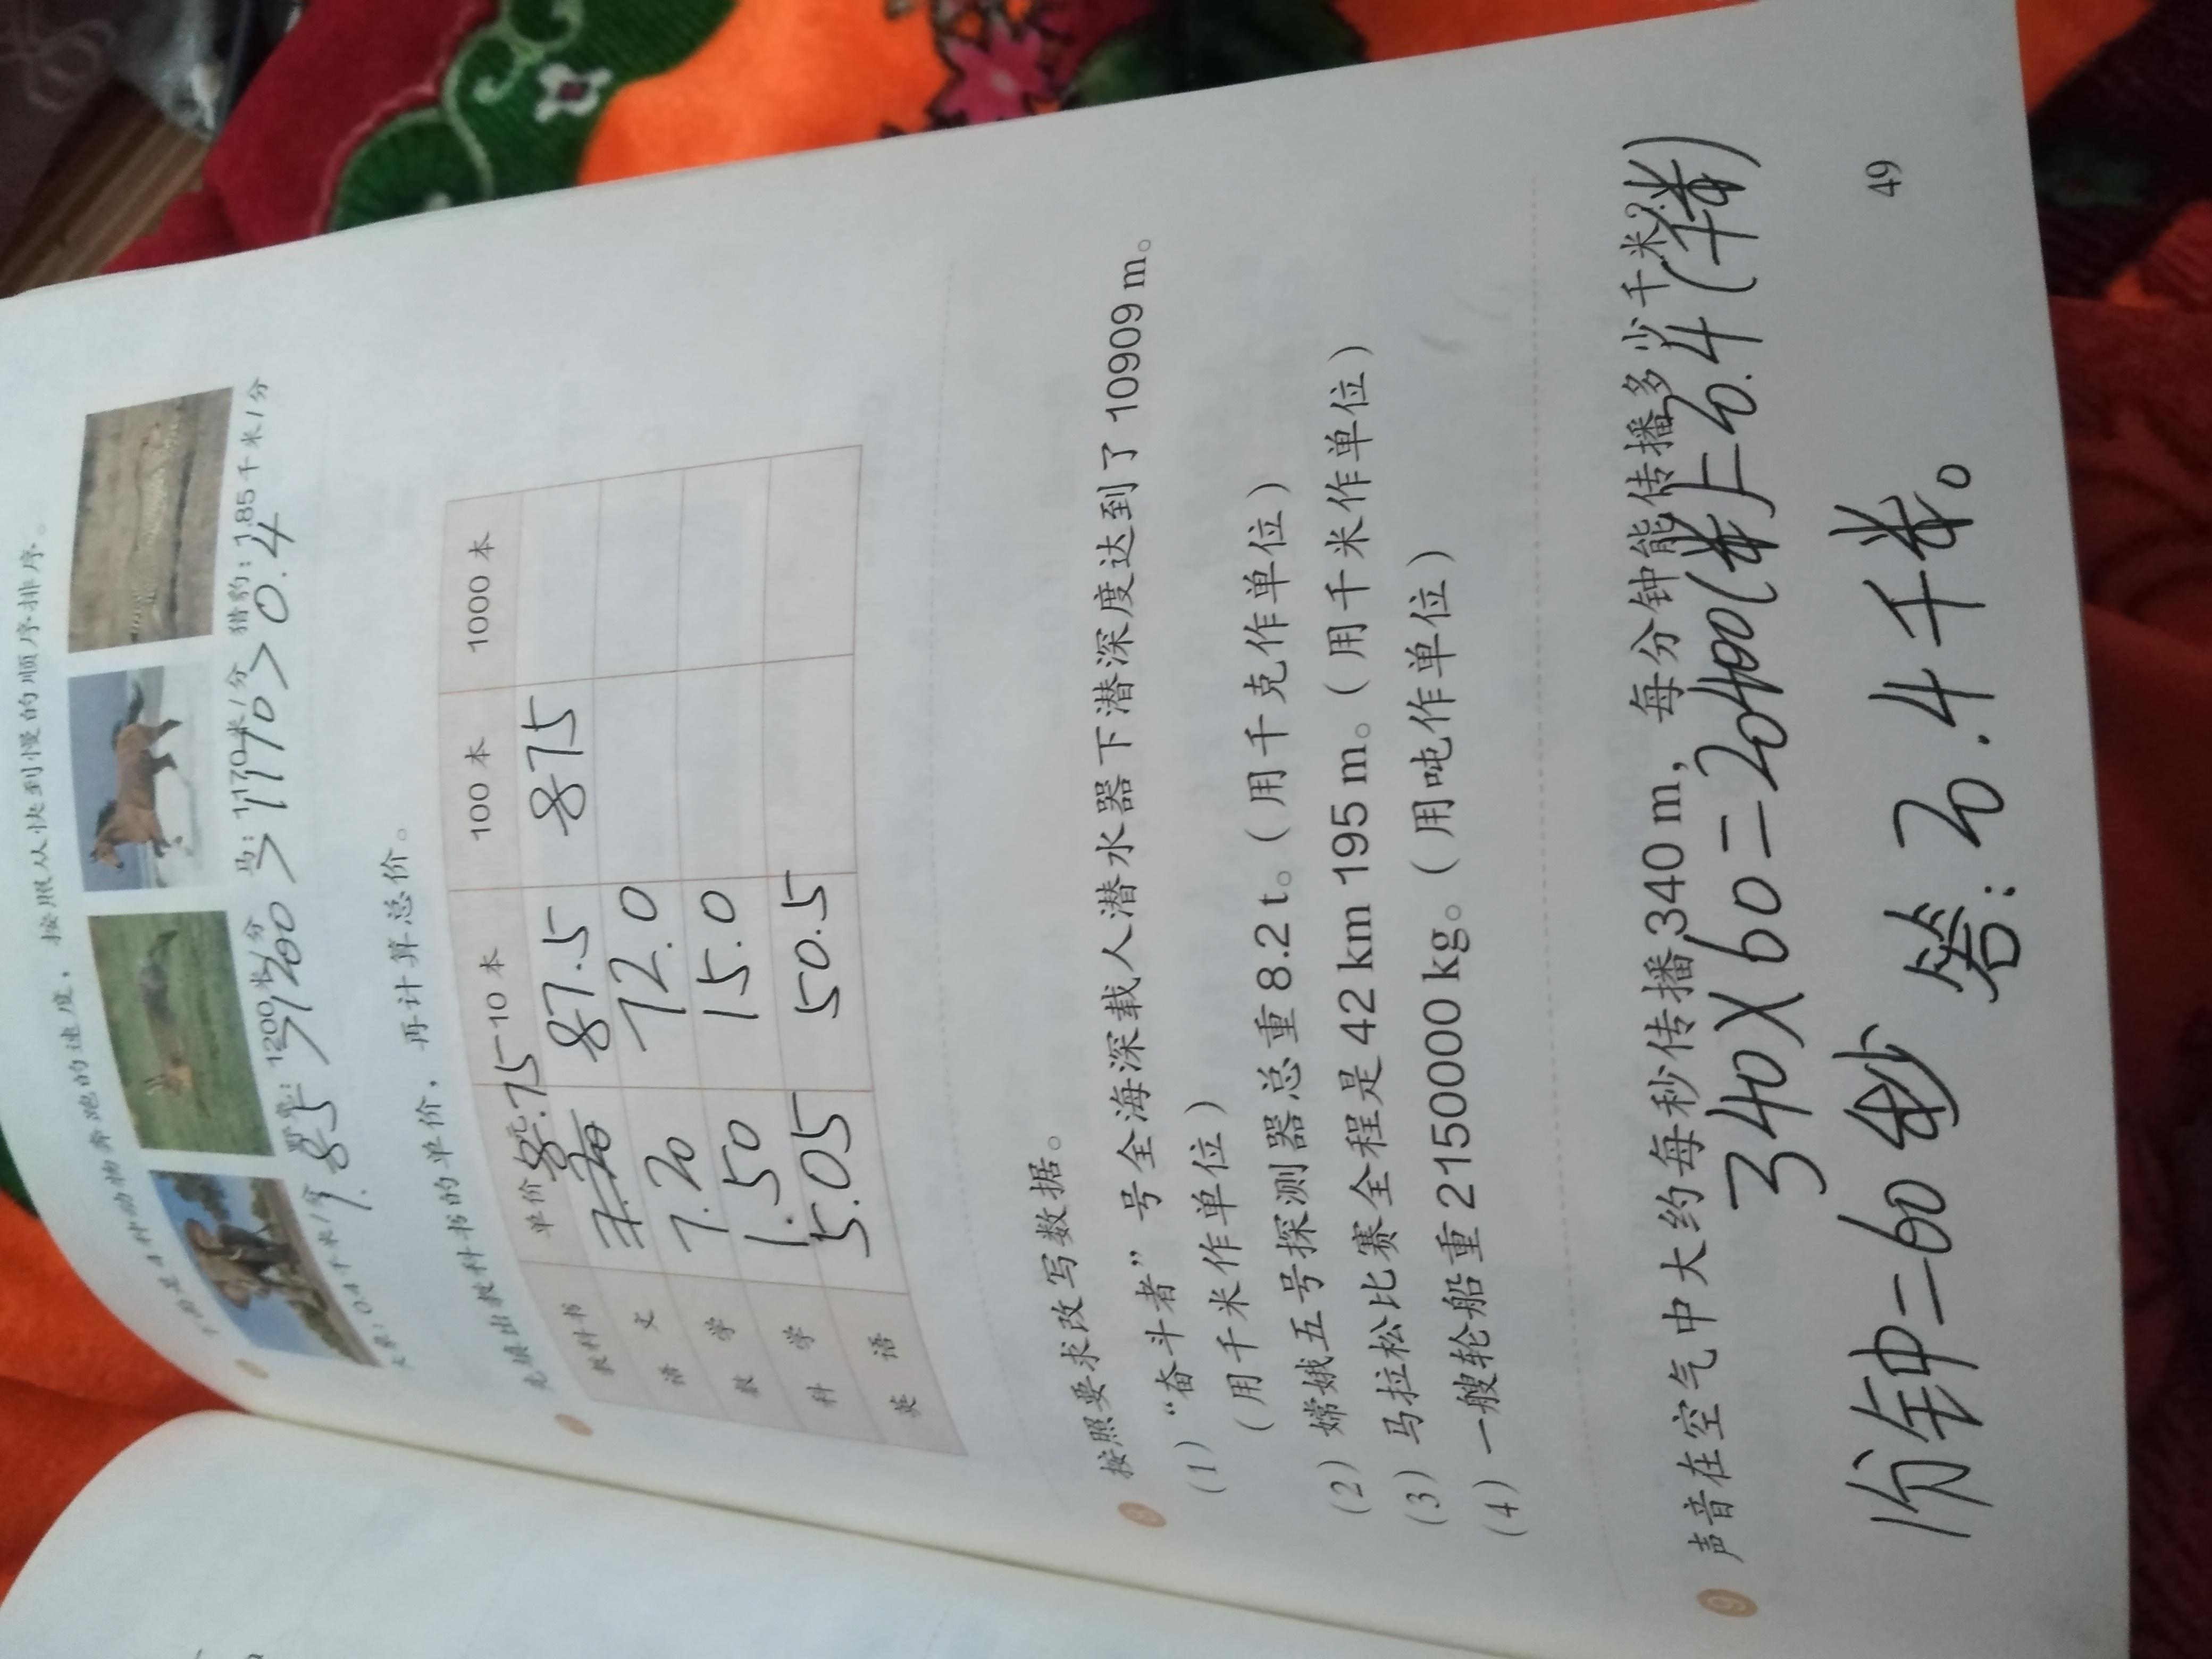 下面是4种动物奔跑的速度，按照从快到慢的顺序排序。
大象：0.4千米/分 野兔：1200米/分 马：1170米/分 猎豹：1.85千米/分
1.85>1200>1170>0.4
先填出教科书的单价，再计算总价。
教科书 单价/元 10本 100本 1000本
语文 8.75 87.5 875
数学 7.20 72.0
科学 1.50 15.0
英语 5.05 50.5
8 按照要求改写数据。
（1）“奋斗者”号全海深载人潜水器下潜深度达到了10909 m。
（用千米作单位）
（2）嫦娥五号探测器总重8.2 t。（用千克作单位）
（3）马拉松比赛全程是42 km 195 m。（用千米作单位）
（4）一艘轮船重2150000 kg。（用吨作单位）
9 声音在空气中大约每秒传播340 m，每分钟能传播多少千米？
340×60=20400(米)=20.4(千米)
1分钟=60秒 答：20.4千米。
49